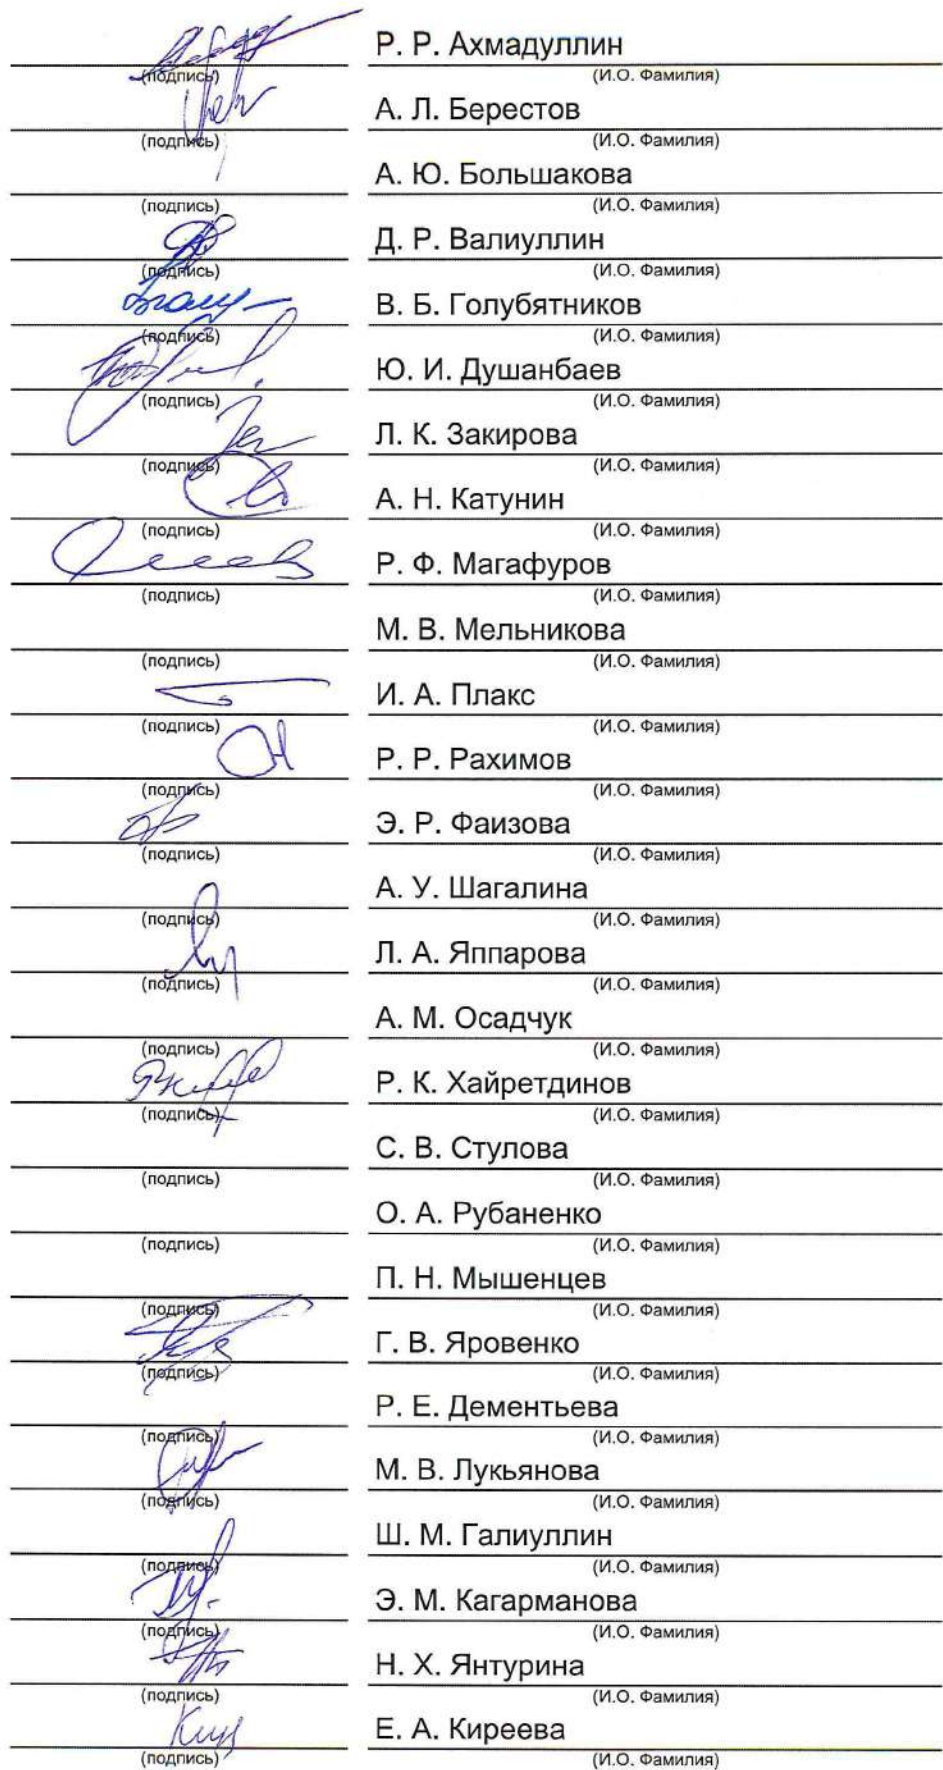 Р. Р. Ахмадуллин
(подпись) (И.О. Фамилия)
А. Л. Берестов
(подпись) (И.О. Фамилия)
А. Ю. Большакова
(подпись) (И.О. Фамилия)
Д. Р. Валиуллин
(подпись) (И.О. Фамилия)
В. Б. Голубятников
(подпись) (И.О. Фамилия)
Ю. И. Душанбаев
(подпись) (И.О. Фамилия)
Л. К. Закирова
(подпись) (И.О. Фамилия)
А. Н. Катунин
(подпись) (И.О. Фамилия)
Р. Ф. Магафуров
(подпись) (И.О. Фамилия)
М. В. Мельникова
(подпись) (И.О. Фамилия)
И. А. Плакс
(подпись) (И.О. Фамилия)
Р. Р. Рахимов
(подпись) (И.О. Фамилия)
Э. Р. Фаизова
(подпись) (И.О. Фамилия)
А. У. Шагалина
(подпись) (И.О. Фамилия)
Л. А. Яппарова
(подпись) (И.О. Фамилия)
А. М. Осадчук
(подпись) (И.О. Фамилия)
Р. К. Хайретдинов
(подпись) (И.О. Фамилия)
С. В. Стулова
(подпись) (И.О. Фамилия)
О. А. Рубаненко
(подпись) (И.О. Фамилия)
П. Н. Мышенцев
(подпись) (И.О. Фамилия)
Г. В. Яровенко
(подпись) (И.О. Фамилия)
Р. Е. Дементьева
(подпись) (И.О. Фамилия)
М. В. Лукьянова
(подпись) (И.О. Фамилия)
Ш. М. Галиуллин
(подпись) (И.О. Фамилия)
Э. М. Кагарманова
(подпись) (И.О. Фамилия)
Н. Х. Янтурина
(подпись) (И.О. Фамилия)
Е. А. Киреева
(подпись) (И.О. Фамилия)